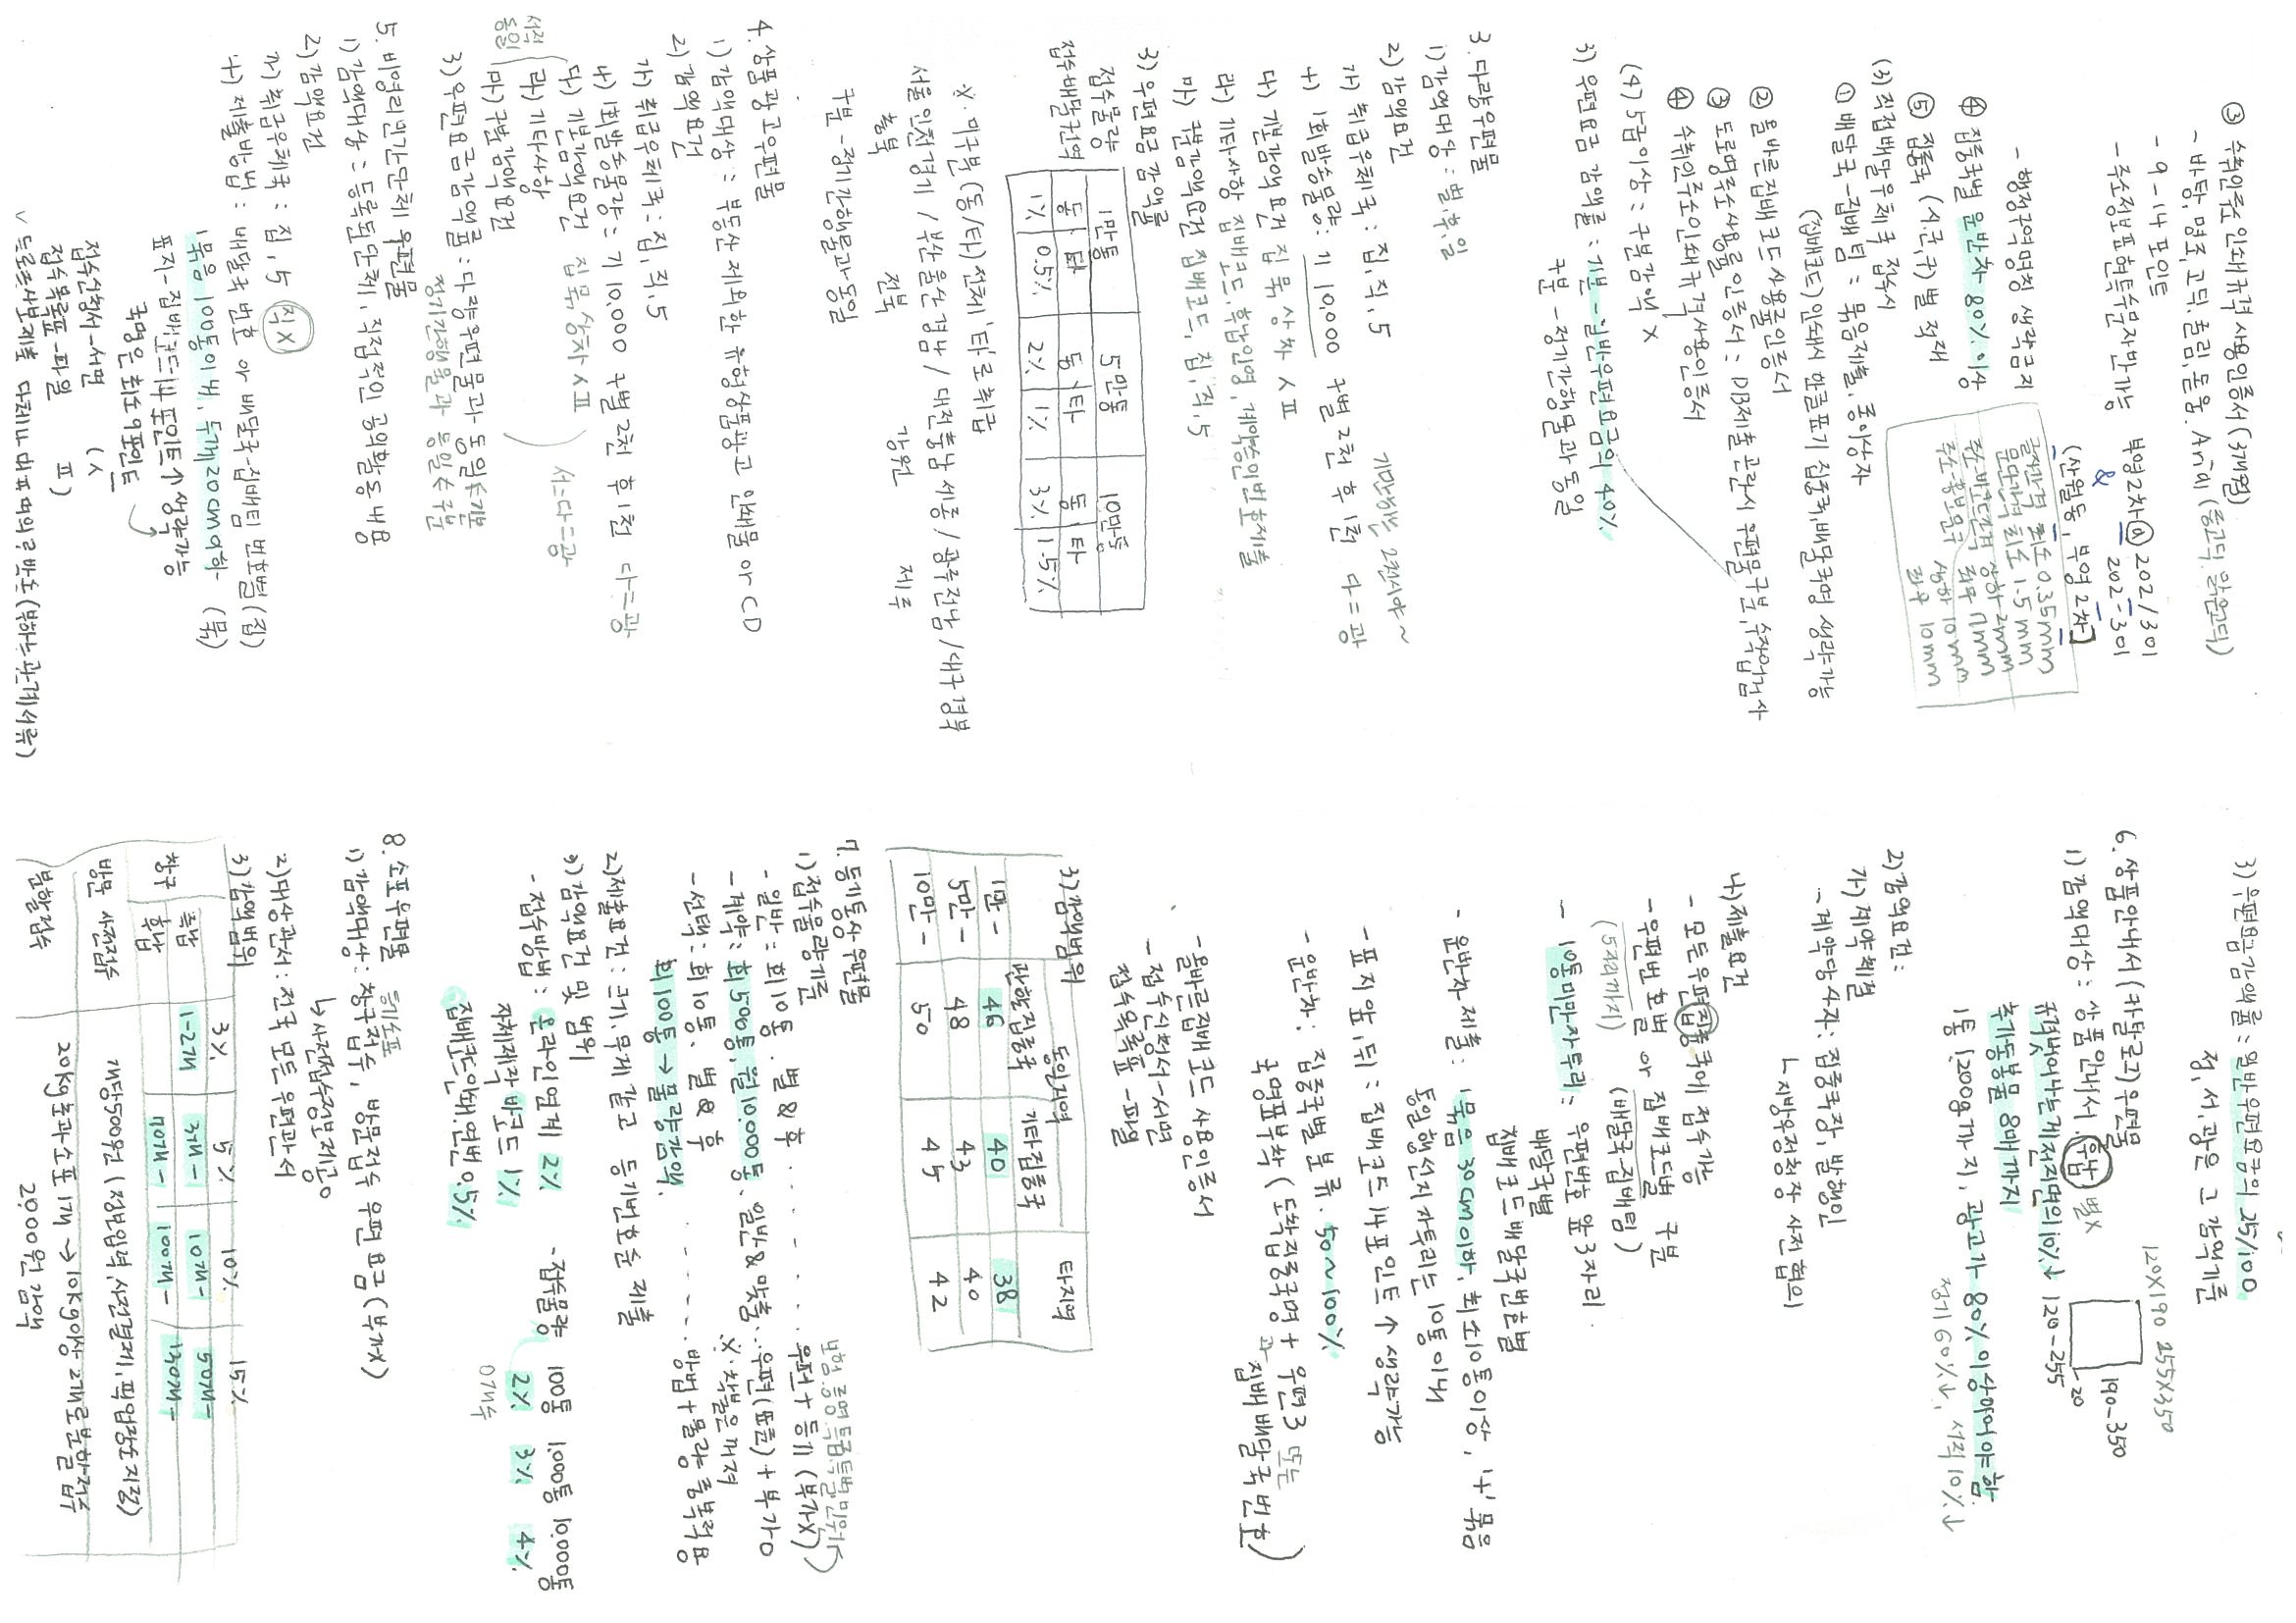 ③ 수취인주소 인쇄규격 사용 인증서 (3개월)
- 바탕, 명조, 고딕, 굴림, 돋움, Arial (중고딕, 맑은고딕)
- 9-14 포인트
- 주소정보 표현 특수문자만 가능
부영2차 ⓐ 202/301
& 202-301
(산월동, 부영2차)
- 행정구역명칭 생략금지
글자간격 최소 0.35mm
문단간격 최소 1.5mm
상하 2mm
좌우 7mm
상하 10mm
좌우 10mm
④ 집중국별 운반차 80% 이상
⑤ 집중국 (시.군.구)별 적재
(3) 직접배달우체국 접수시
① 배달국-집배팀 : 묶음제출, 종이상자
(집배코드) 인쇄시 한글표기 집중국,배달국명 생략가능
② 올바른 집배코드 사용률 인증서
③ 도로명주소사용률 인증서 : DB제출 곤란시 우편물구분, 수작업검사
④ 수취인주소인쇄규격사용인증서
(4) 5급이상 : 구분감액 X
3) 우편요금 감액률 : 기본 - 일반우편요금의 40%
구분 - 정기간행물과 동일
3. 다량우편물
1) 감액대상 : 별,후,일
2) 감액요건
가) 취급우체국 : 집, 직, 5
나) 1회발송물량 : 기 10,000 구별 2천 후 1천 다=광
다) 기본감액요건 접 묶 상차 ㅅㅍ
라) 기타사항 집배코드, 후납인영, 계약승인번호제출
마) 구분감액요건 집배코드, 집, 직, 5
3) 우편요금 감액률
접수물량 1만통 5만통 10만통
접수배달권역 동 타 동 타 동 타
1% 0.5% 2% 1% 3% 1.5%
※. 미구분(동/타)전체 '타'로 취급
서울 인천 경기 / 부산 울산 경남 / 대전 충남 세종 / 광주 전남 / 대구 경북
충북 전북 강원 제주
구분 - 정기간행물과 동일
4. 상품광고우편물
1) 감액대상 : 부동산 제외한 유형상품광고 인쇄물 or CD
2) 감액요건
가) 취급우체국 : 집, 직, 5
나) 1회발송물량 : 기 10,000 구별 2천 후 1천 다=광
다) 기본감액요건 접 묶, 상차 ㅅㅍ
라) 기타사항
마) 구분감액요건
3) 우편요금감액률 : 다량우편물과 동일 <기본
정기간행물과 동일 <구분
5. 비영리민간단체 우편물
1) 감액대상 : 등록된 단체, 직접적인 공익활동 내용
2) 감액요건
가) 취급우체국 : 집, 5 (직X)
나) 제출방법 : 배달국번호 or 배달국-집배팀 번호별 (집)
1묶음 100통이내, 두께 20cm이하 (묶)
표지 - 집배코드 14포인트↑ 생략가능
국명은 최소 9포인트
접수신청서-서면 (ㅅ
접수목록표-파일 ㅍ)
3) 우편요금감액률 : 일반우편요금의 25/100
정, 서, 광은 그 감액기준
6. 상품안내서(카탈로그)우편물
1) 감액대상 : 상품안내서, 후납 별X
120X190 255X350
190-350
120-255
-20
규격벗어나는 게 전면의 10%↓
추가동봉물 8매까지
1통 1,200g까지, 광고가 80% 이상이어야 함
정기 60%↓, 서적 10%↓
2) 감액요건 :
가) 계약체결
- 계약당사자 : 집중국장, 발행인
ㄴ지방우정청장 사전협의
나) 제출요건
- 모든 우편집중국이 접수가능
- 우편번호별 or 집배코드별 구분
(5자리까지) (배달국-집배팀)
- 10통미만자투리 : 우편번호 앞 3자리
배달국별
집배코드 배달국번호별
- 운반차 제출 : 1묶음 30cm이하, 최소10통이상, '+' 묶음
동일행선지 자투리는 10통 이내
- 표지 앞, 뒤 : 집배코드 14포인트↑ 생략가능
- 운반차 : 집중국별 분류. 50~100%
국명표부착 (도착집중국명 + 우편3 또는 집배 배달국 번호)
- 올바른집배코드 사용인증서
- 접수신청서-서면
접수목록표-파일
3) 감액범위
동일지역 타지역
관할집중국 기타집중국
1만- 46 40 38
5만- 48 43 40
10만- 50 45 42
7. 등기통상우편물
1) 접수물량기준
- 일반 : 회10통, 별 & 후 ..... 우편 + 등기 (부가X)
- 계약 : 회500통, 월10,000통, 일반 & 맞춤.. 우편(표준) + 부가O
※. 착불은 꺼져
- 선택 : 회10통, 별 & 후 ....... 방법 + 물량 중복적용
회100통 → 물량감액.
2) 제출요건 : 크기,무게 같고 등기번호순 제출
3) 감액요건 및 범위
- 접수방법 : 온라인연계 2%
자체제작 바코드 1%
집배코드인쇄.연번 0.5%
- 접수물량 100통 1,000통 10,000통
2% 3% 4%
8. 소포우편물
1) 감액대상 : 창구접수, 방문접수 우편요금 (부가X)
등기소포
↳사전접수정보제공
2) 대상관서 : 전국 모든 우편관서
3) 감액범위 3% 5% 10% 15%
창구 즉납 1-2개 3개- 10개- 50개-
후납 70개- 100개- 130개-
방문 사전접수 개당500원 (정보입력,사전결제,픽업장소지정)
분할접수 20kg초과 소포 1개 → 10kg이상 2개로 분할접수
2,000원 감액